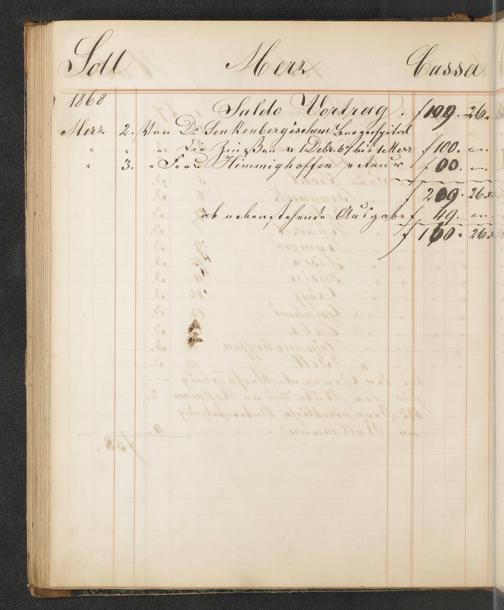 Soll Merz Cassa
1868
Saldo Vortrag . f 199. 26.
Merz 2. Von Dr. Senkenbergischem Bürgerspital
" " " für Zinßen v 1 Debr. 67 bis 1 Merz f 100. "
" 3. " Frau Himmighoffen f 00. "
f 209. 26
ab nebenstehende Ausgabe f 49. "
f 160. 26